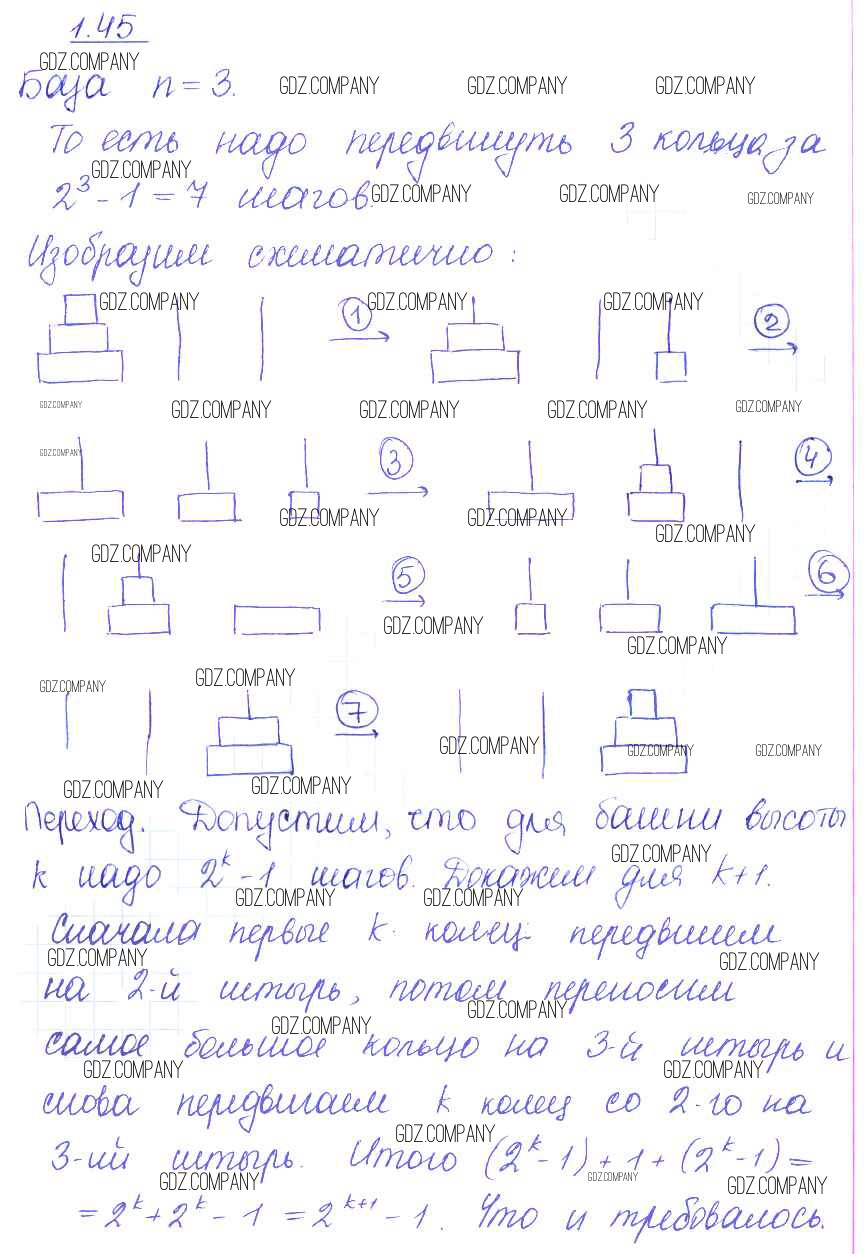 1.45
GDZ.COMPANY
База n = 3. GDZ.COMPANY GDZ.COMPANY GDZ.COMPANY
То есть надо передвинуть 3 кольца за
GDZ.COMPANY
2³ - 1 = 7 шагов. GDZ.COMPANY GDZ.COMPANY GDZ.COMPANY
Изобразим схематично:
GDZ.COMPANY GDZ.COMPANY GDZ.COMPANY
1 2
GDZ.COMPANY GDZ.COMPANY GDZ.COMPANY GDZ.COMPANY GDZ.COMPANY
GDZ.COMPANY 3 4
GDZ.COMPANY GDZ.COMPANY
GDZ.COMPANY
GDZ.COMPANY
5 6
GDZ.COMPANY
GDZ.COMPANY
GDZ.COMPANY GDZ.COMPANY
7
GDZ.COMPANY GDZ.COMPANY GDZ.COMPANY
GDZ.COMPANY GDZ.COMPANY
Переход. Допустим, что для башни высоты
GDZ.COMPANY
k надо 2ᵏ - 1 шагов. Докажем для k+1.
GDZ.COMPANY GDZ.COMPANY
Сначала первые k колец передвинем
GDZ.COMPANY GDZ.COMPANY
на 2-й штырь, потом переносим
GDZ.COMPANY
GDZ.COMPANY
самое большое кольцо на 3-й штырь и
GDZ.COMPANY GDZ.COMPANY
снова передвигаем k колец со 2-го на
GDZ.COMPANY
3-ий штырь. Итого (2ᵏ - 1) + 1 + (2ᵏ - 1) =
GDZ.COMPANY GDZ.COMPANY GDZ.COMPANY
= 2ᵏ + 2ᵏ - 1 = 2ᵏ⁺¹ - 1. Что и требовалось.